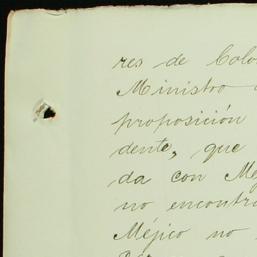 res de Colo
Ministro
proposición
dente, que
da con Mé
no encontra
Méjico no